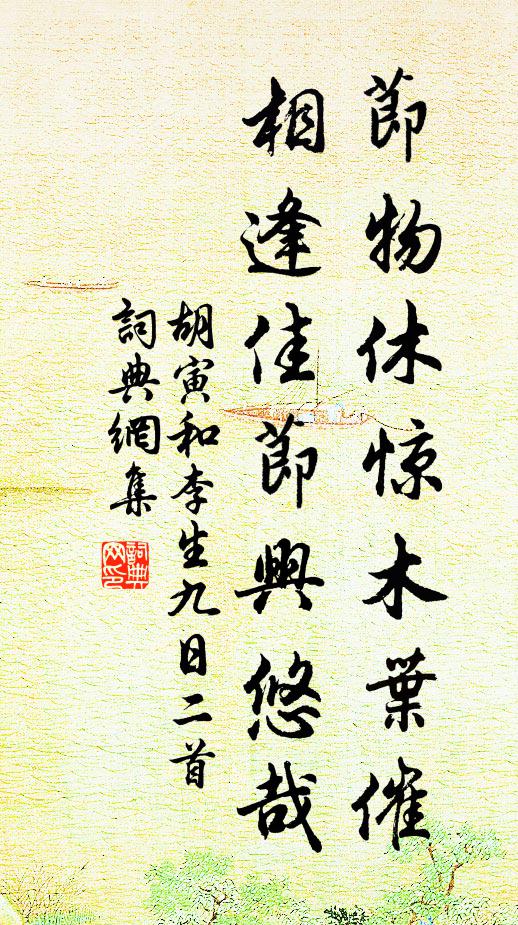 節物休惊木葉催
相逢佳節興悠哉
胡寅和李生九日二首
詞典網集
詞典网印